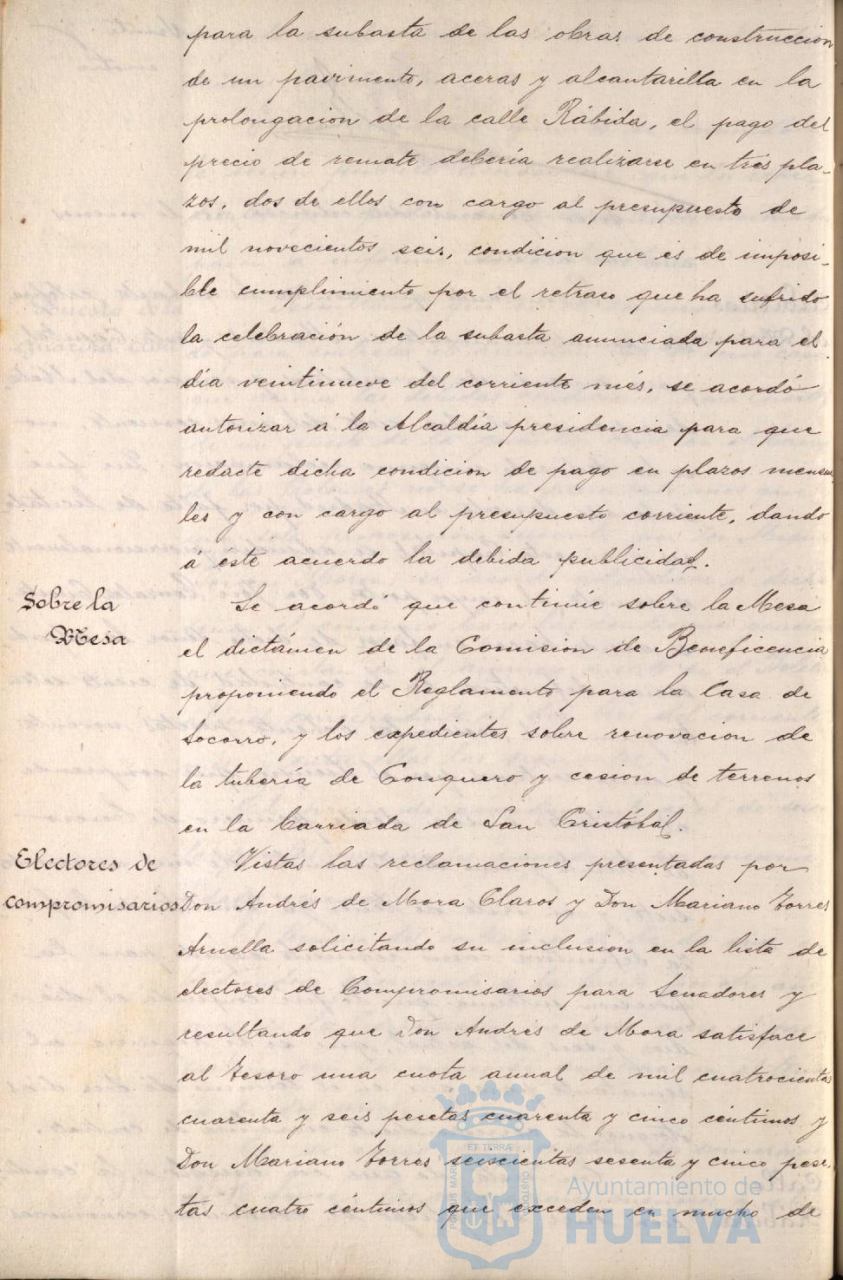 para la subasta de las obras de construccion
de un pavimento, aceras y alcantarilla en la
prolongación de la calle Rábida, el pago del
precio de remate debería realizarse en tres pla-
zos, dos de ellos con cargo al presupuesto de
mil novecientos seis, condicion que es de imposi-
ble cumplimiento por el retraso que ha sufrido
la celebración de la subasta anunciada para el
día veintinueve del corriente més, se acordó
autorizar á la Alcaldía presidencia para que
redacte dicha condicion de pago en plazos mensua-
les y con cargo al presupuesto corriente, dando
á éste acuerdo la debida publicidad.
Sobre la
Mesa
Se acordó que continúe sobre la Mesa
el dictámen de la Comision de Beneficencia
proponiendo el Reglamento para la Casa de
Socorro, y los expedientes sobre renovacion de
la tubería de Conquero y cesion de terrenos
en la barriada de San Cristóbal.
Electores de
compromisarios
Vistas las reclamaciones presentadas por
Don Andrés de Mora Claros y Don Mariano Torres
solicitando su inclusion en la lista de
electores de Compromisarios para Senadores y
resultando que Don Andrés de Mora satisface
al Tesoro una cuota anual de mil cuatrocientas
cuarenta y seis pesetas cuarenta y cinco céntimos y
Don Mariano Torres seiscientas sesenta y cinco pese-
tas cuatro céntimos que exceden en mucho de
Ayuntamiento de
HUELVA